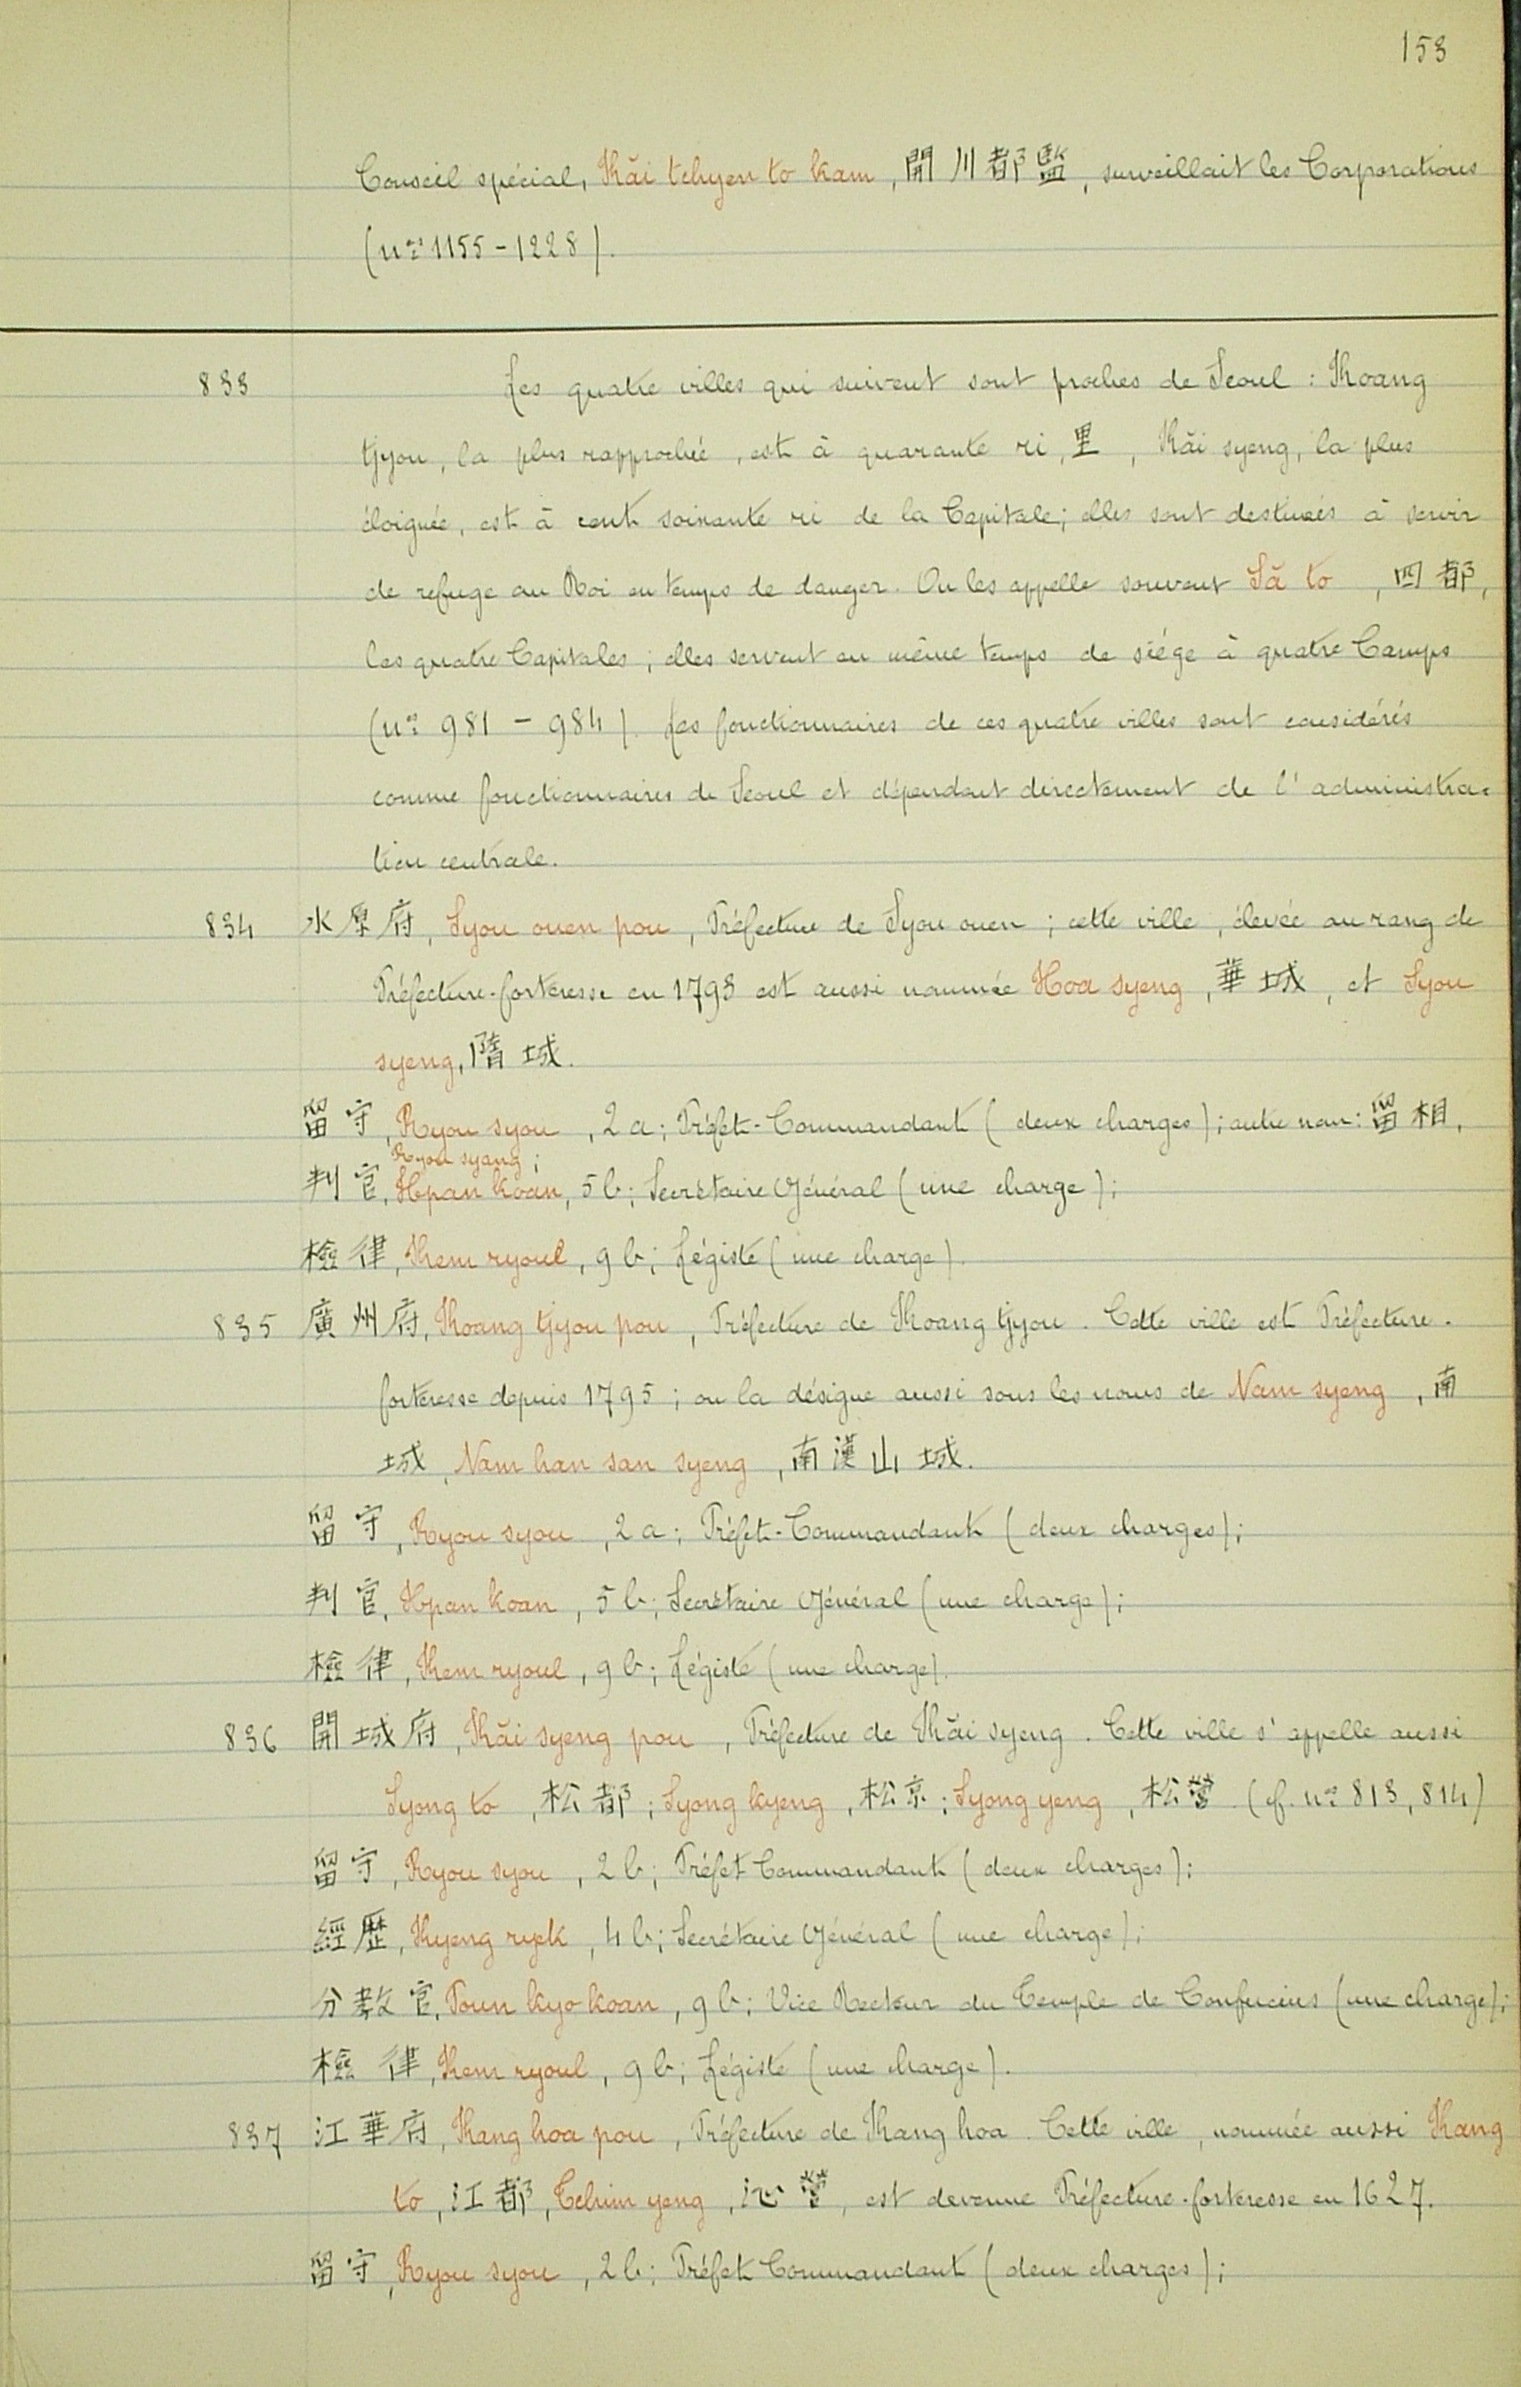 153
Conseil spécial, Kăi tchyen to kam, 開川都監, surveillait les Corporations
(nos 1155-1228).
833 Les quatre villes qui suivent sont proches de Seoul : Koang
tjyou, la plus rapprochée, est à quarante ri, 里, Kăi syeng, la plus
éloignée, est à cent soixante ri de la Capitale; elles sont destinées à servir
de refuge au Roi en temps de danger. On les appelle souvent Să to, 四都,
les quatre Capitales; elles servent en même temps de siége à quatre Camps
(nos 981 - 984). Les fonctionnaires de ces quatre villes sont considérés
comme fonctionnaires de Seoul et dépendent directement de l'administra-
tion centrale.
834 水原府, Syou ouen pou, Préfecture de Syou ouen; cette ville, élevée au rang de
Préfecture-forteresse en 1793 est aussi nommée Hoa syeng, 華城, et Syou
syeng, 隋城.
留守, Ryou syou, 2a; Préfet-Commandant (deux charges); autre nom: 留相,
Ryou syang;
判官, Hpan koan, 5b; Secrétaire Général (une charge);
檢律, Kem ryoul, 9b; Légiste (une charge).
835 廣州府, Koang tjyou pou, Préfecture de Koang tjyou. Cette ville est Préfecture-
forteresse depuis 1795; on la désigne aussi sous les noms de Nam syeng, 南
城, Nam han san syeng, 南漢山城.
留守, Ryou syou, 2a; Préfet-Commandant (deux charges);
判官, Hpan koan, 5b; Secrétaire Général (une charge);
檢律, Kem ryoul, 9b; Légiste (une charge).
836 開城府, Kăi syeng pou, Préfecture de Kăi syeng. Cette ville s'appelle aussi
Syong to, 松都; Syong kyeng, 松京; Syong yeng, 松營. (cf. nos 813, 814)
留守, Ryou syou, 2b; Préfet Commandant (deux charges);
經歷, Kyeng ryek, 4b; Secrétaire Général (une charge);
分敎官, Poun kyo koan, 9b; Vice Recteur du Temple de Confucius (une charge);
檢律, Kem ryoul, 9b; Légiste (une charge).
837 江華府, Kang hoa pou, Préfecture de Kang hoa. Cette ville, nommée aussi Kang
to, 江都, Tchim yeng, 沁營, est devenue Préfecture-forteresse en 1627.
留守, Ryou syou, 2b; Préfet Commandant (deux charges);